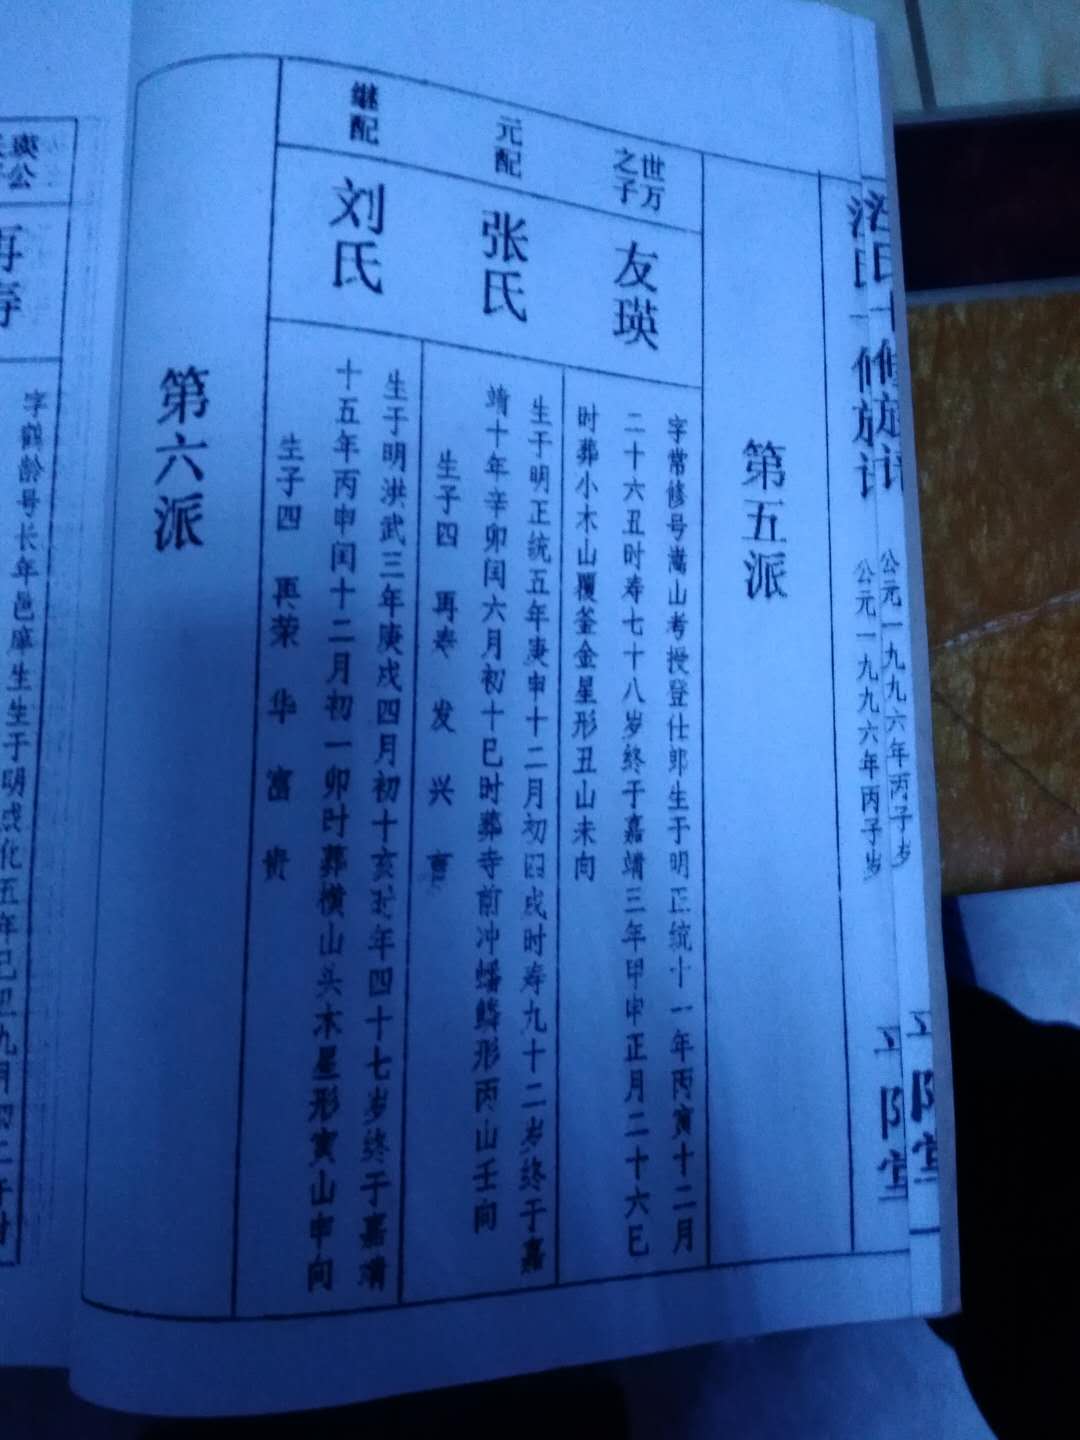 公元一九九六年丙子岁
公元一九九六年丙子岁
第五派
世万
之子
友瑛
字常修号嵩山考授登仕郎生于明正统十一年丙寅十二月
二十六丑时寿七十八岁终于嘉靖三年甲申正月二十六巳
时葬小木山覆釜金星形丑山未向
元配
张氏
生于明正统五年庚申十二月初四戌时寿九十二岁终于嘉
靖十年辛卯闰六月初十巳时葬寺前冲蟠鳞形丙山壬向
生子四 再寿 发 兴
继配
刘氏
生于明洪武三年庚戌四月初十亥时年四十七岁终于嘉靖
十五年丙申闰十二月初一卯时葬横山头木星形寅山申向
生子四 再荣 华 富 贵
第六派
瑛
公
再寿
字 号长年邑庠生生于明成化五年己丑九月初二